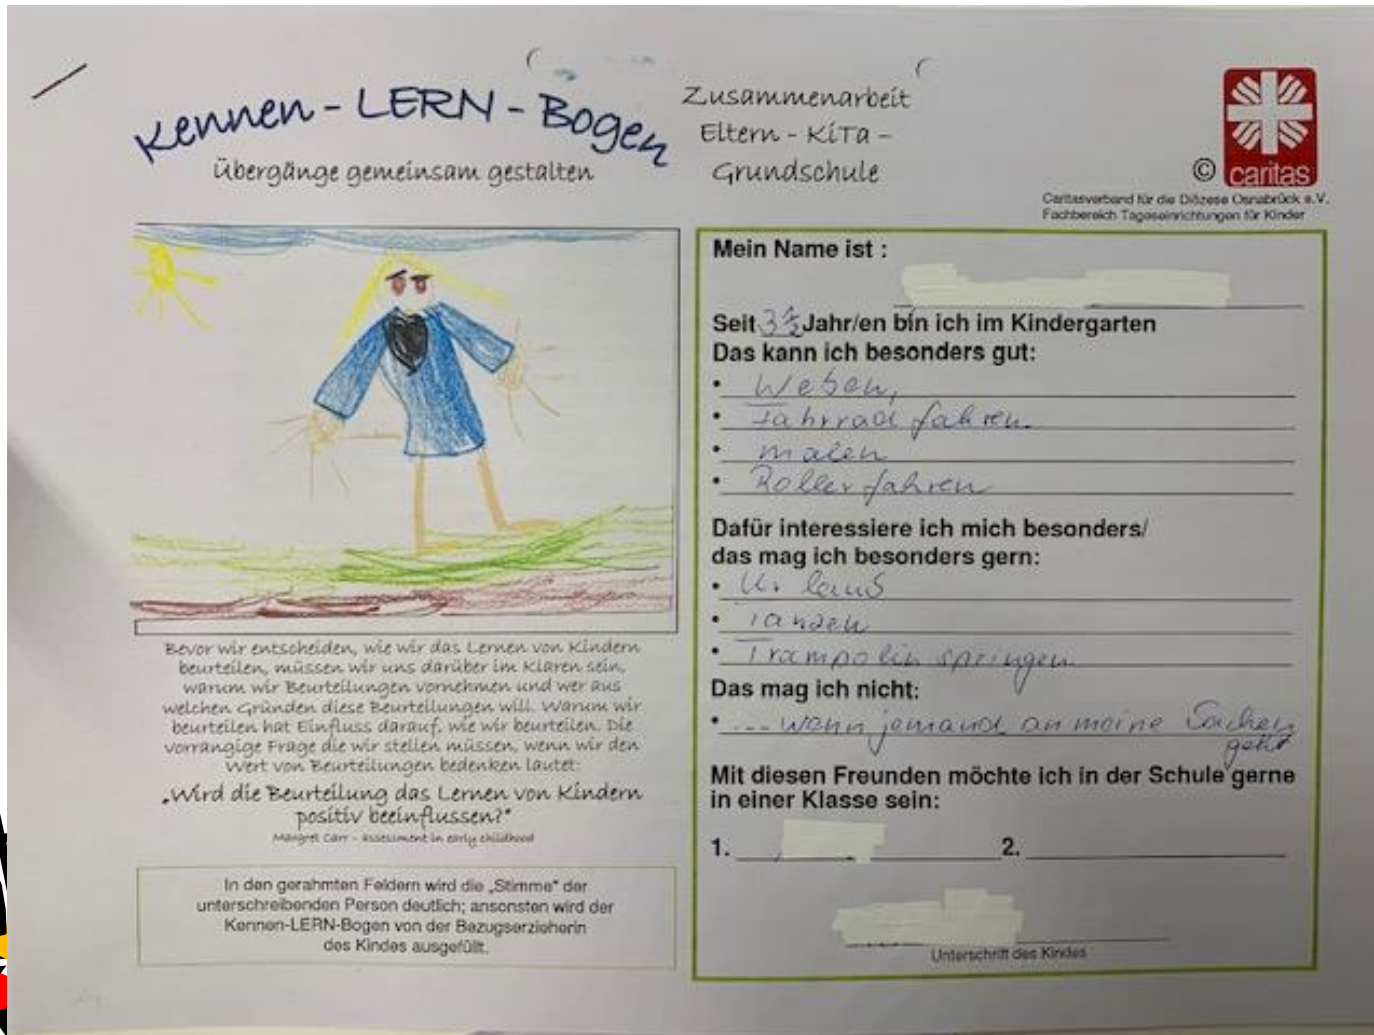 Kennen - LERN - Bogen
Übergänge gemeinsam gestalten
Zusammenarbeit
Eltern - KiTa -
Grundschule
©
caritas
Caritasverband für die Diözese Osnabrück e.V.
Fachbereich Tageseinrichtungen für Kinder
Bevor wir entscheiden, wie wir das Lernen von Kindern
beurteilen, müssen wir uns darüber im Klaren sein,
warum wir Beurteilungen vornehmen und wer aus
welchen Gründen diese Beurteilungen will. Warum wir
beurteilen hat Einfluss darauf, wie wir beurteilen. Die
vorrangige Frage die wir stellen müssen, wenn wir den
Wert von Beurteilungen bedenken lautet:
„Wird die Beurteilung das Lernen von Kindern
positiv beeinflussen?"
Margret Carr - assessment in early childhood
In den gerahmten Feldern wird die „Stimme" der
unterschreibenden Person deutlich; ansonsten wird der
Kennen-LERN-Bogen von der Bezugserzieherin
des Kindes ausgefüllt.
Mein Name ist :
Seit 3 ½ Jahr/en bin ich im Kindergarten
Das kann ich besonders gut:
• Weben,
• Fahrrad fahren
• malen
• Roller fahren
Dafür interessiere ich mich besonders/
das mag ich besonders gern:
•
• Tanzen
• Trampolin springen
Das mag ich nicht:
• ... wenn jemand an meine Sachen
geht
Mit diesen Freunden möchte ich in der Schule gerne
in einer Klasse sein:
1. 2.
Unterschrift des Kindes